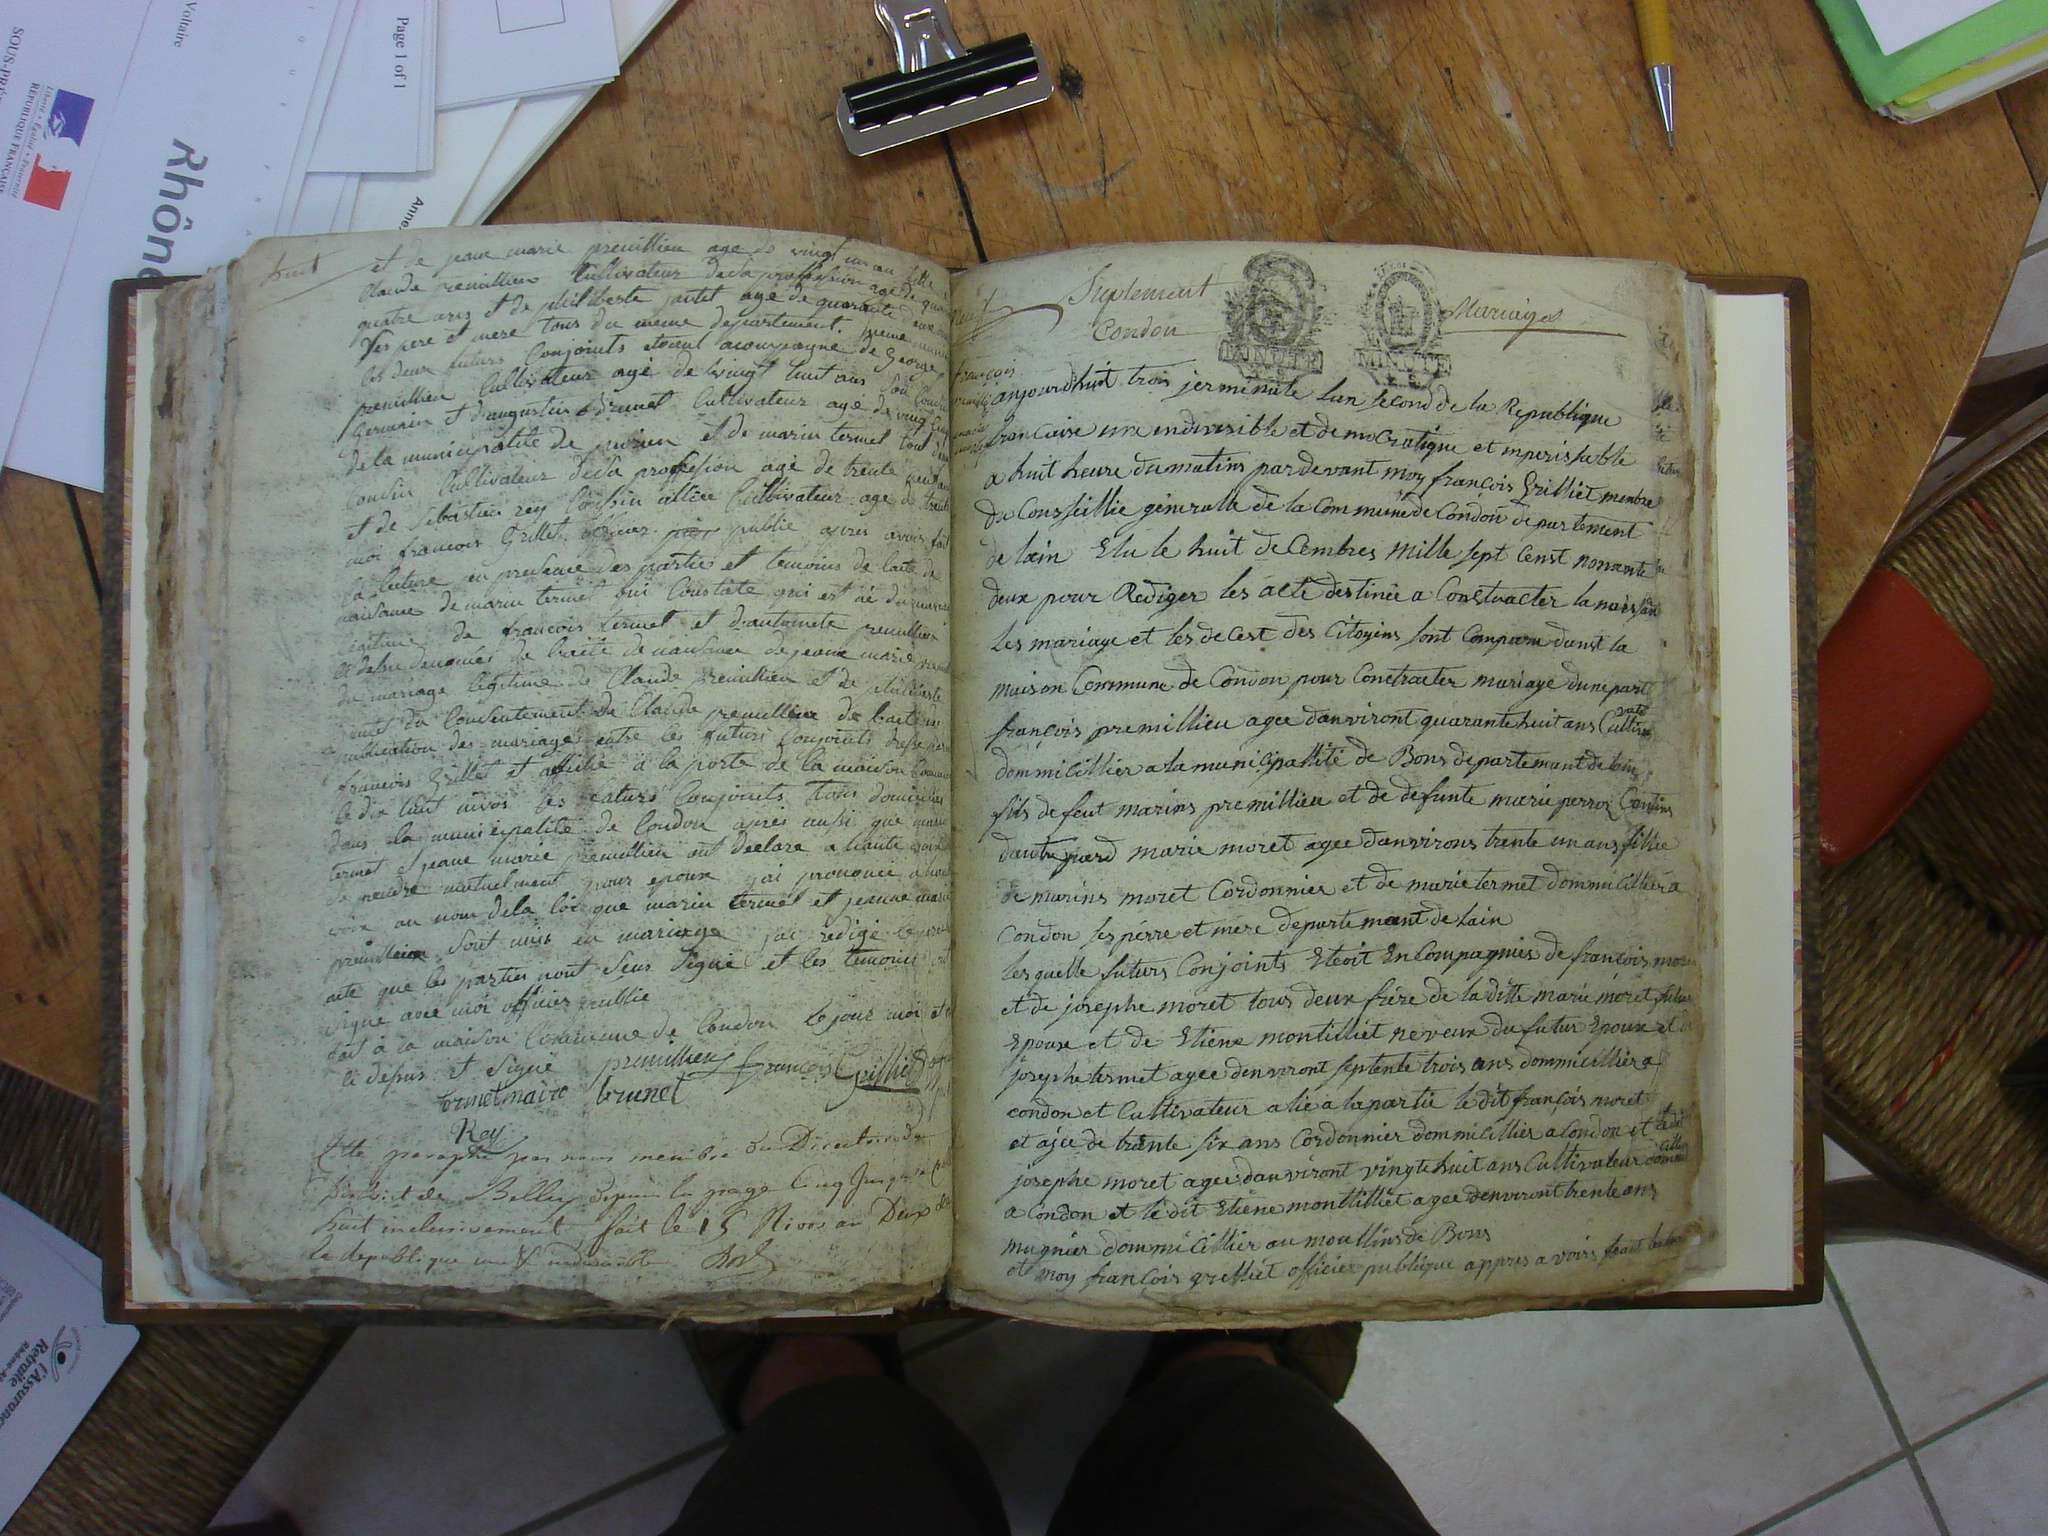 Voltaire
SOUS-PRÉ
Liberté • Égalité • Fraternité
RÉPUBLIQUE FRANÇAISE
Rhôn
Page 1 of 1
Anne
l'Assurance
Retraite
huit
et de jeane marie premillieu age de vingt un an fille
Claude premillieu Cultivateur de sa proffession age de
quatre ans et de philiberte jantet age de quarante
ses pere et mere tous du meme departement.
les deux futurs Conjoints etoient acompagné de George
premillieu Cultivateur agé de vingt huit ans
Germain et d'augustin brunet Cultivateur age de vingt
de la municipalité de et de marin termet tout
Cousin Cultivateur de sa proffession agé de trente
et de Sebastien rey Cousin allier Cultivateur age de trente
moi francois Grillet officier publie apres avoir fait
la lecture en presence des partie et temoins de lacte de
naisance de marin termet qui Constate qui est né du mariage
legitime de francois termet et d'antoinete premillieu
de lacte de naisance de jeane marie
du mariage legitime de Claude premillieu et de philiberte
du Consentement de Claude premillieu de lacte de
publication des mariage entre les futurs Conjoints
francois Grillet et affiché a la porte de la maison
le dix huit nivos les futurs Conjoints tous domicilies
dans la municipalité de Condon apres aussi que marin
termet et jeane marie premillieu ont declare a haute voix
se prendre mutuelment pour epoux j'ai prononcé a haute
voix au nom de la loi que marin termet et jeanne marie
premillieu sont unis en mariage j'ai redigé le
acte que les parties nont Seus Signé et les temoins ont
signé avec moi officier publie
fait à la maison Commune de Condon le jour moi et
ci depus et signé premillieu françois Grilliet
termet maire brunet
Rey
Cotté paraphé par nous membre du Directoire du
District de Belley depuis la page Cinq jusqu'a
huit inclusivement, fait le 15 Nivos an Deux de
la republique une & indivisible
Suplement
Mariages
Condon
MINUTE
MINUTE
françois
marie
aujourdhuit trois jerminale lan second de la Republique
francaise une indivisible et democratique et imperissable
a huit heure du matins par devant moy françois Grilliet menbre
du Consseillie génèralle de la Commune de Condon departement
de lain Elu le huit deCembres Mille sept Censt nonnante
deux pour Rediger les acte destinée a Constracter la naissan
les mariage et les deCest des Citoyins sont Comparu danst la
maison Commune de Condon pour Contracter mariage dune part
françois premillieu agee danviront quarante huit ans Cultiva
dommicillier a la municipallité de Bons departemant de lain
fils de feut marins premillieu et de defunte marie perroz
dautre pard marie moret agee danvirons trente un ans fillie
de marins moret Cordonnier et de marie termet dommicillier a
Condon ses pérre et mere departemant de lain
lesquelle futurs Conjoints Etoit En Compagnies de françois moret
et de josephe moret tous deux frére de la ditte marie moret futur
Epoux et de Etiene montilliet neveux du futur Epoux et
josephe termet agee denviront septente trois ans dommicillier a
condon et Cultivateur alie a la partie le dit françois moret
et agee de trante six ans Cordonnier dommicillier a Condon et le dit
josephe moret agee danviront vingte huit ans Cultivateur
a Condon et le dit Etiene montilliet agee denviront trente ans
mugnier dommicillier au moullins de Bons
et moy françois grelliet officier publique appres avoir fait